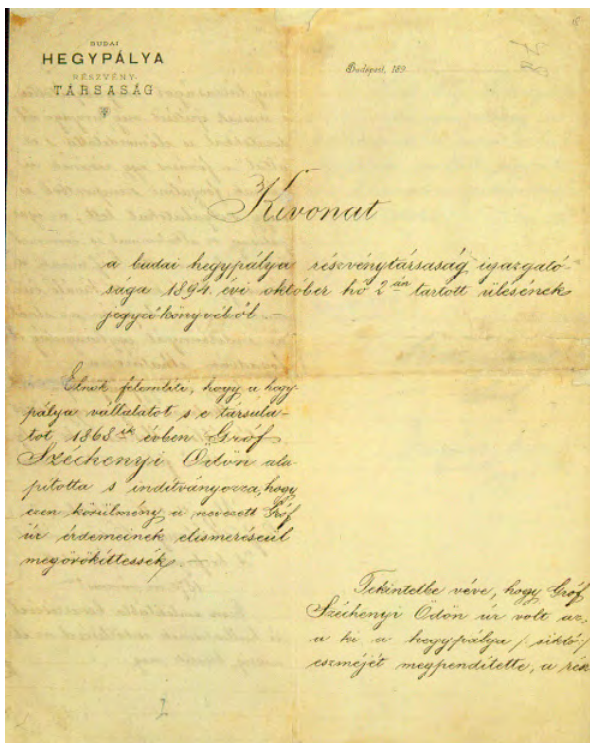 BUDAI
HEGYPÁLYA
RÉSZVÉNY-
TÁRSASÁG
Budapest, 189
Kivonat
a budai hegypálya részvénytársaság igazgató-
sága 1894. évi október hó 2 án tartott ülésének
jegyzőkönyvéből.—
Elnök felemlíti, hogy a hegy-
pálya vállalatot s e társula-
tot 1868 ik évben Gróf
Széchenyi Ödön ala
pította s indítványozza, hogy
ezen körülmény a nevezett Gróf
úr érdemeinek elismeréseül
megörökíttessék.
Tekintetbe véve, hogy Gróf
Széchenyi Ödön úr volt az,
a ki a hegypálya /: sikló :/
eszméjét megpendítette, a rész